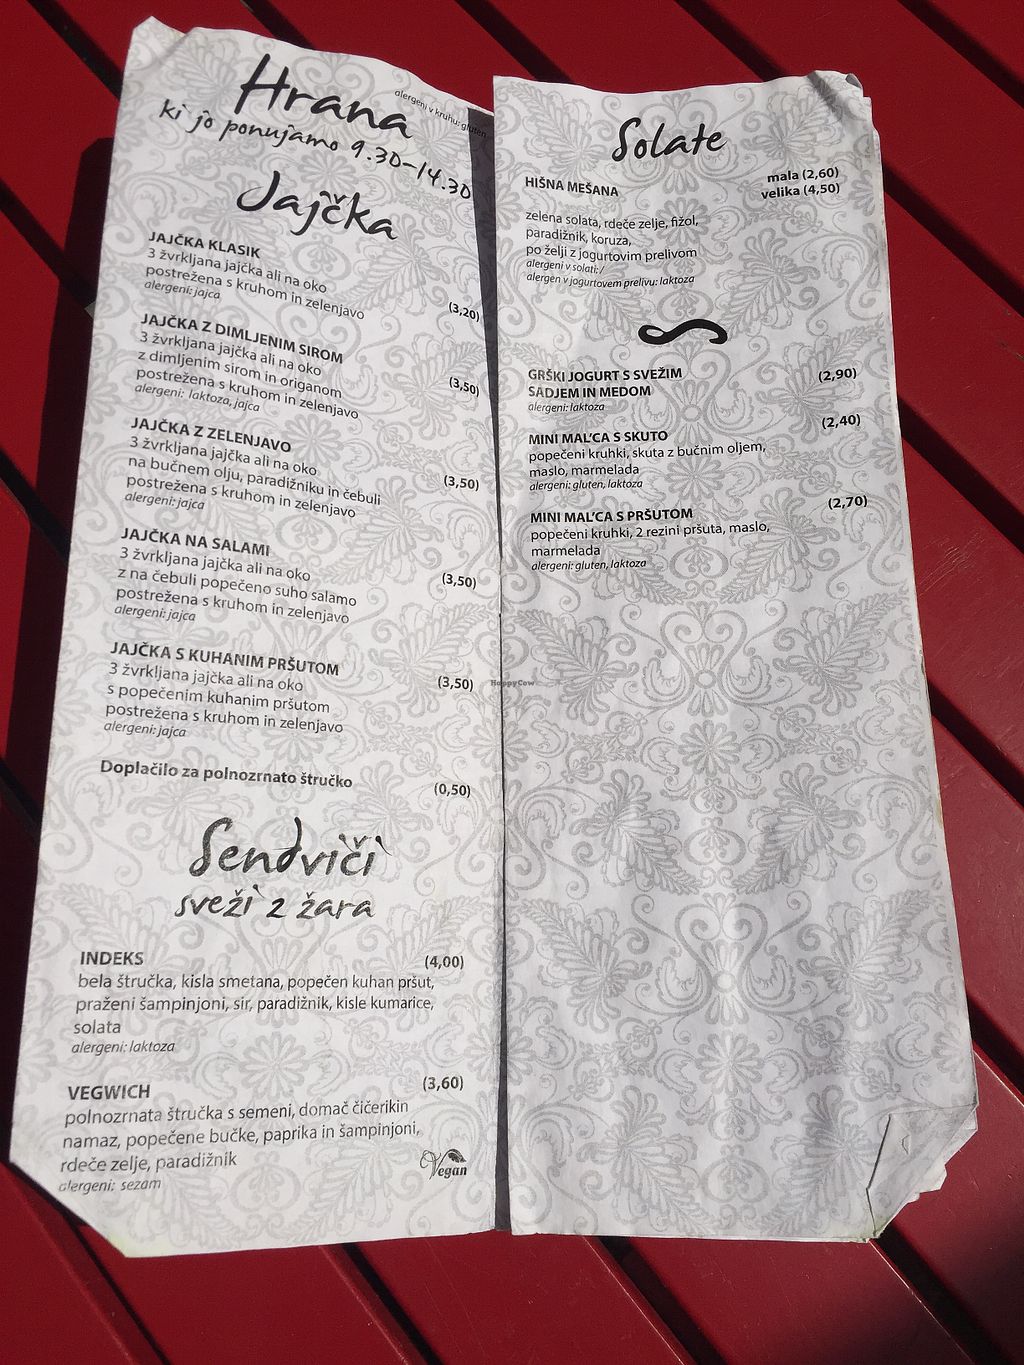 Hrana
alergeni v kruhu: gluten
ki jo ponujamo 9.30-14.30
Jajčka
JAJČKA KLASIK
3 žvrkljana jajčka ali na oko
postrežena s kruhom in zelenjavo (3,20)
alergeni: jajca
JAJČKA Z DIMLJENIM SIROM
3 žvrkljana jajčka ali na oko
z dimljenim sirom in origanom (3,50)
postrežena s kruhom in zelenjavo
alergeni: laktoza, jajca
JAJČKA Z ZELENJAVO
3 žvrkljana jajčka ali na oko
na bučnem olju, paradižniku in čebuli (3,50)
postrežena s kruhom in zelenjavo
alergeni: jajca
JAJČKA NA SALAMI
3 žvrkljana jajčka ali na oko (3,50)
z na čebuli popečeno suho salamo
postrežena s kruhom in zelenjavo
alergeni: jajca
JAJČKA S KUHANIM PRŠUTOM
3 žvrkljana jajčka ali na oko (3,50)
s popečenim kuhanim pršutom
postrežena s kruhom in zelenjavo
alergeni: jajca
Doplačilo za polnozrnato štručko (0,50)
Sendviči
sveži z žara
INDEKS (4,00)
bela štručka, kisla smetana, popečen kuhan pršut,
praženi šampinjoni, sir, paradižnik, kisle kumarice,
solata
alergeni: laktoza
VEGWICH (3,60)
polnozrnata štručka s semeni, domač čičerikin
namaz, popečene bučke, paprika in šampinjoni,
rdeče zelje, paradižnik
Vegan
alergeni: sezam
Solate
HIŠNA MEŠANA mala (2,60)
velika (4,50)
zelena solata, rdeče zelje, fižol,
paradižnik, koruza,
po želji z jogurtovim prelivom
alergeni v solati: /
alergen v jogurtovem prelivu: laktoza
GRŠKI JOGURT S SVEŽIM (2,90)
SADJEM IN MEDOM
alergeni: laktoza
MINI MAL'CA S SKUTO (2,40)
popečeni kruhki, skuta z bučnim oljem,
maslo, marmelada
alergeni: gluten, laktoza
MINI MAL'CA S PRŠUTOM (2,70)
popečeni kruhki, 2 rezini pršuta, maslo,
marmelada
alergeni: gluten, laktoza
HappyCow